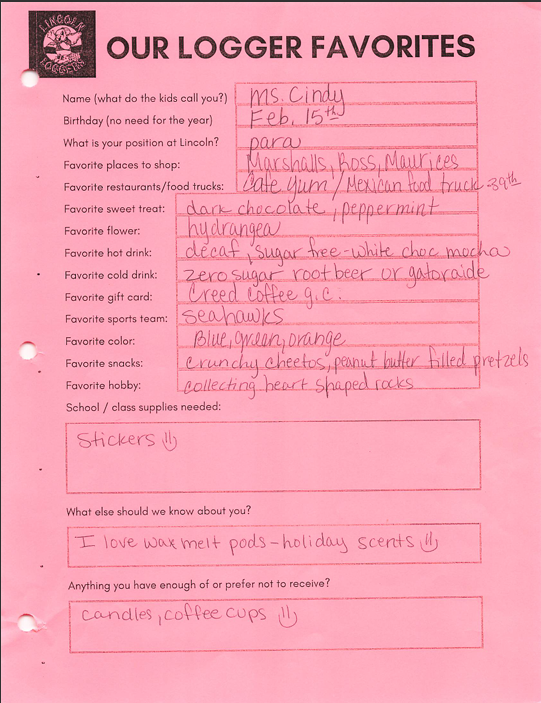 LINCOLN
LOGGERS
OUR LOGGER FAVORITES
Name (what do the kids call you?) Ms. Cindy
Birthday (no need for the year) Feb. 15th
What is your position at Lincoln? para
Favorite places to shop: Marshalls, Ross, Maurices
Favorite restaurants/food trucks: Cafe Yum / Mexican food truck - 39th
Favorite sweet treat: dark chocolate, peppermint
Favorite flower: hydrangea
Favorite hot drink: decaf, sugar free - white choc mocha
Favorite cold drink: zero sugar rootbeer or gatoraide
Favorite gift card: Creed Coffee g.c.
Favorite sports team: Seahawks
Favorite color: Blue, green, orange
Favorite snacks: crunchy cheetos, peanut butter filled pretzels
Favorite hobby: collecting heart shaped rocks
School / class supplies needed:
Stickers
What else should we know about you?
I love wax melt pods - holiday scents
Anything you have enough of or prefer not to receive?
candles, coffee cups